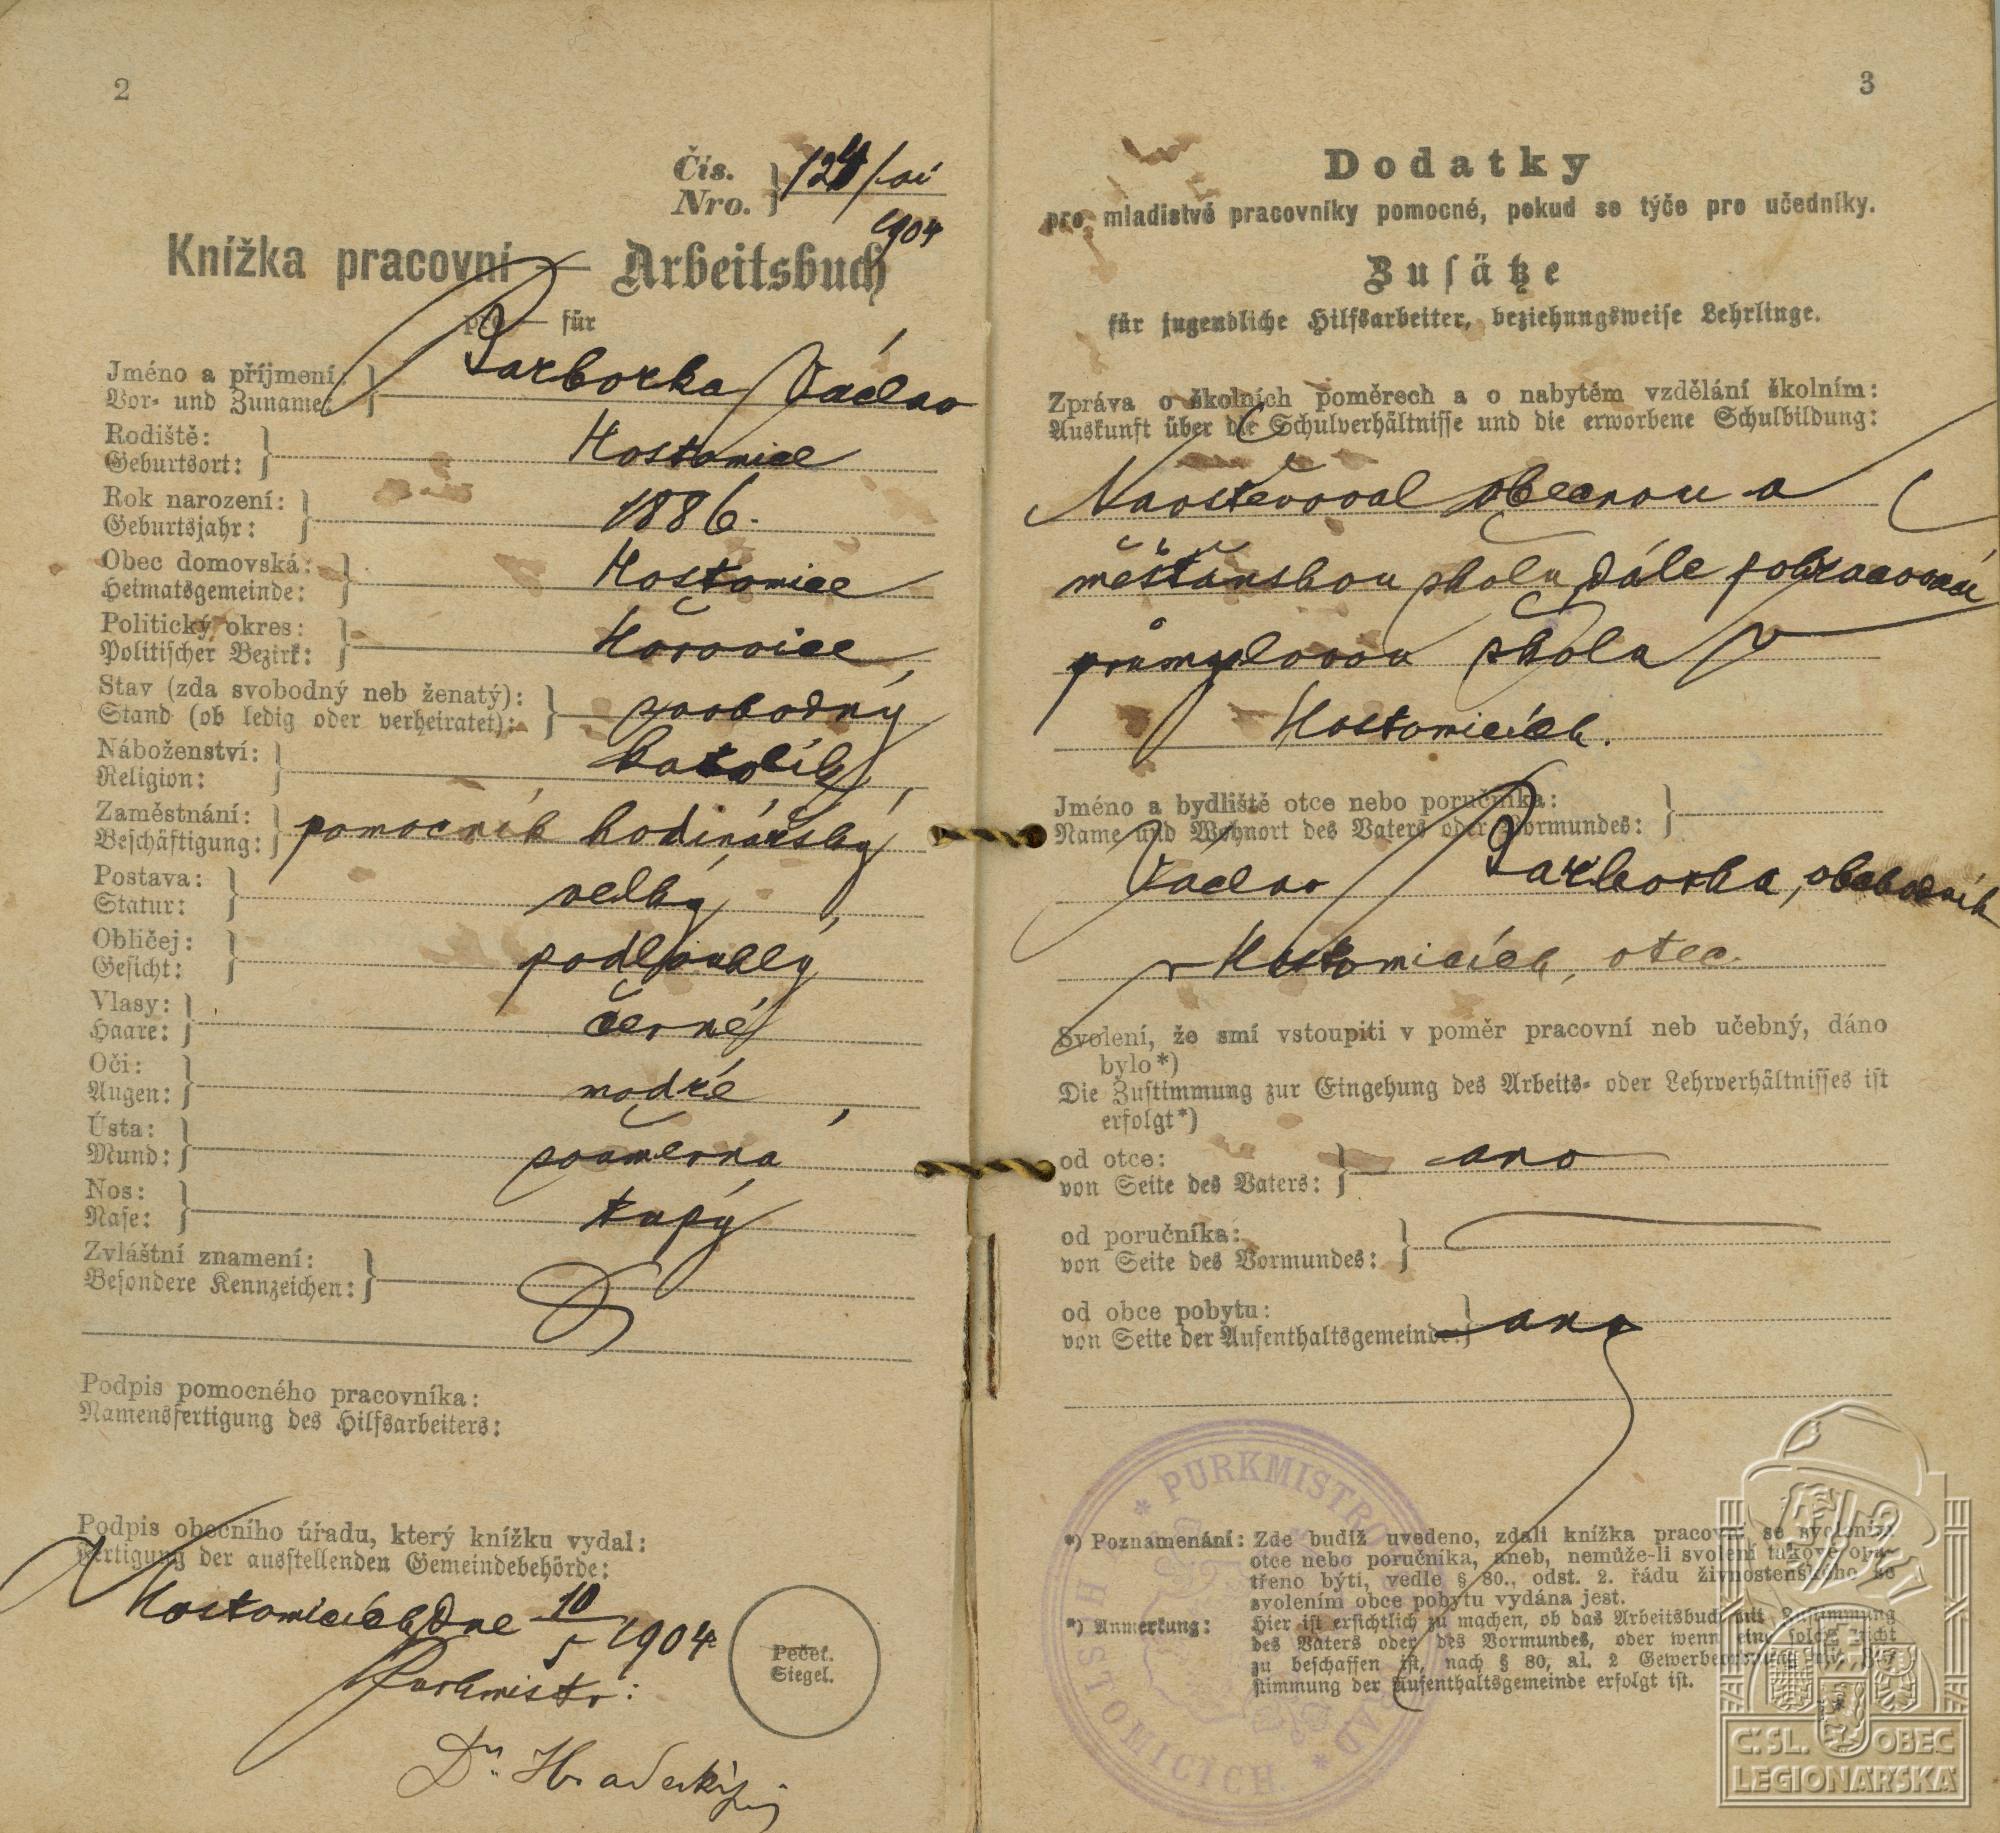 2
Čís.
Nro.
1904
Knížka pracovní — Arbeitsbuch
pro — für
Jméno a příjmení:
Vor- und Zuname:
Parborka Václav
Rodiště:
Geburtsort:
Hostomice
Rok narození:
Geburtsjahr:
1886.
Obec domovská:
Heimatsgemeinde:
Hostomice
Politický okres:
Politischer Bezirk:
Hořovice
Stav (zda svobodný neb ženatý):
Stand (ob ledig oder verheiratet):
svobodný
Náboženství:
Religion:
katolík
Zaměstnání:
Beschäftigung:
pomocník hodinářský
Postava:
Statur:
velký
Obličej:
Gesicht:
podlouhlý
Vlasy:
Haare:
černé
Oči:
Augen:
modré
Ústa:
Mund:
souměrná
Nos:
Nase:
tupý
Zvláštní znamení:
Besondere Kennzeichen:
Podpis pomocného pracovníka:
Namensfertigung des Hilfsarbeiters:
Podpis obecního úřadu, který knížku vydal:
Fertigung der ausstellenden Gemeindebehörde:
V Hostomicích dne 10/5 1904.
Purkmistr:
Pečeť.
Siegel.
Dr. Hradecký
3
Dodatky
pro mladistvé pracovníky pomocné, pokud se týče pro učedníky.
Zusätze
für jugendliche Hilfsarbeiter, beziehungsweise Lehrlinge.
Zpráva o školních poměrech a o nabytém vzdělání školním:
Auskunft über die Schulverhältnisse und die erworbene Schulbildung:
Navštěvoval obecnou a
měšťanskou školu, dále pokračovací
průmyslovou školu v
Hostomicích.
Jméno a bydliště otce nebo poručníka:
Name und Wohnort des Vaters oder Vormundes:
Václav Parborka, obchodník
v Hostomicích, otec.
Svolení, že smí vstoupiti v poměr pracovní neb učebný, dáno
bylo*)
Die Zustimmung zur Eingehung des Arbeits- oder Lehrverhältnisses ist
erfolgt*)
od otce:
von Seite des Vaters:
ano
od poručníka:
von Seite des Vormundes:
od obce pobytu:
von Seite der Aufenthaltsgemeinde:
ano
*) Poznamenání: Zde budiž uvedeno, zdali knížka pracovní se svolením
otce nebo poručníka, aneb, nemůže-li svolení takové opa-
třeno býti, vedle § 80., odst. 2. řádu živnostenského se
svolením obce pobytu vydána jest.
*) Anmerkung: Hier ist ersichtlich zu machen, ob das Arbeitsbuch mit Zustimmung
des Vaters oder des Vormundes, oder wenn eine solche nicht
zu beschaffen ist, nach § 80, al. 2 Gewerbeordnung mit Zu-
stimmung der Aufenthaltsgemeinde erfolgt ist.
* PURKMISTROVSKÝ ÚŘAD * V HOSTOMICÍCH
Č.SL. OBEC
LEGIONÁŘSKÁ